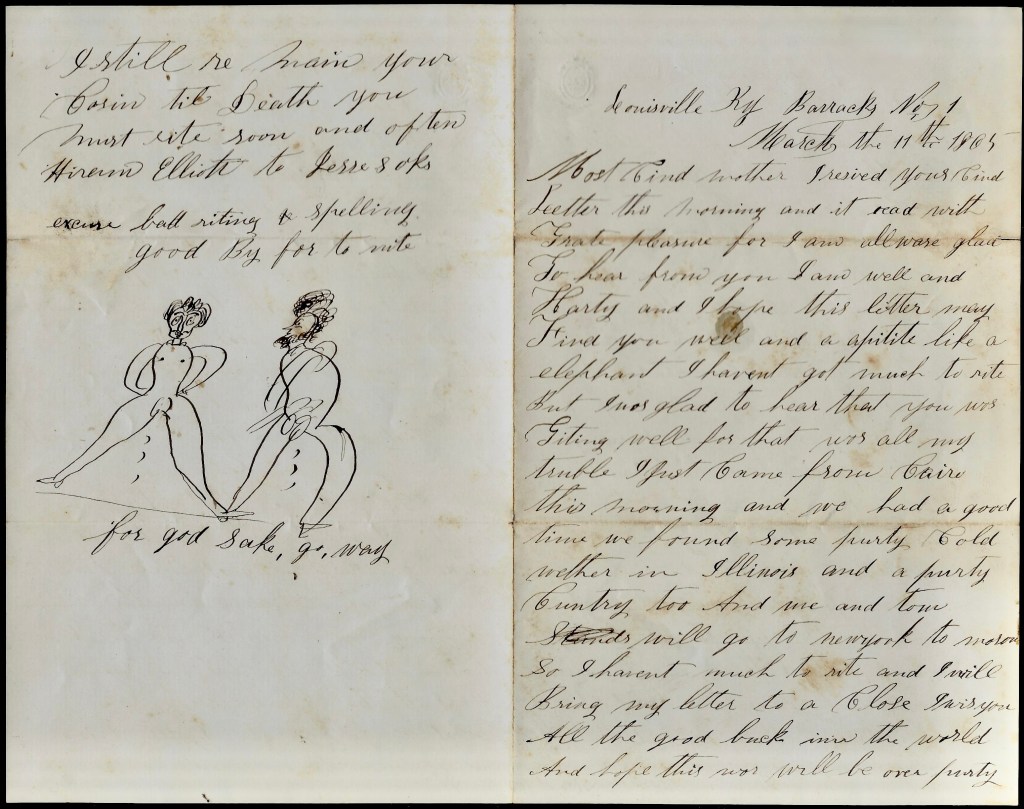 Leouisville Ky Barracks No, 1
March the 11th 1865
Most Cind mother I resived your Cind
Leetter this morning and it read with
Grate pleasure for I am all ware glad
To hear from you I am well and
Harty and I hope this letter may
Find you well and a apitite like a
elephant I havent got much to rite
But I wos glad to hear that you wos
Giting well for that wos all my
truble I Just Came from Cairo
this morning and we had a good
time we found some purty Cold
wether in Illinois and a purty
Cuntry too And me and tom
will go to newyork to morow
So I havent much to rite and I will
Bring my letter to a Close I wis you
All the good luck in the world
And hope this wor will be over purty
I still re main your
Cosin til Death you
must rite soon and often
Hiram Elliott to Jesse
excuse bad riting & spelling
good By for to nite
for god sake, go, way